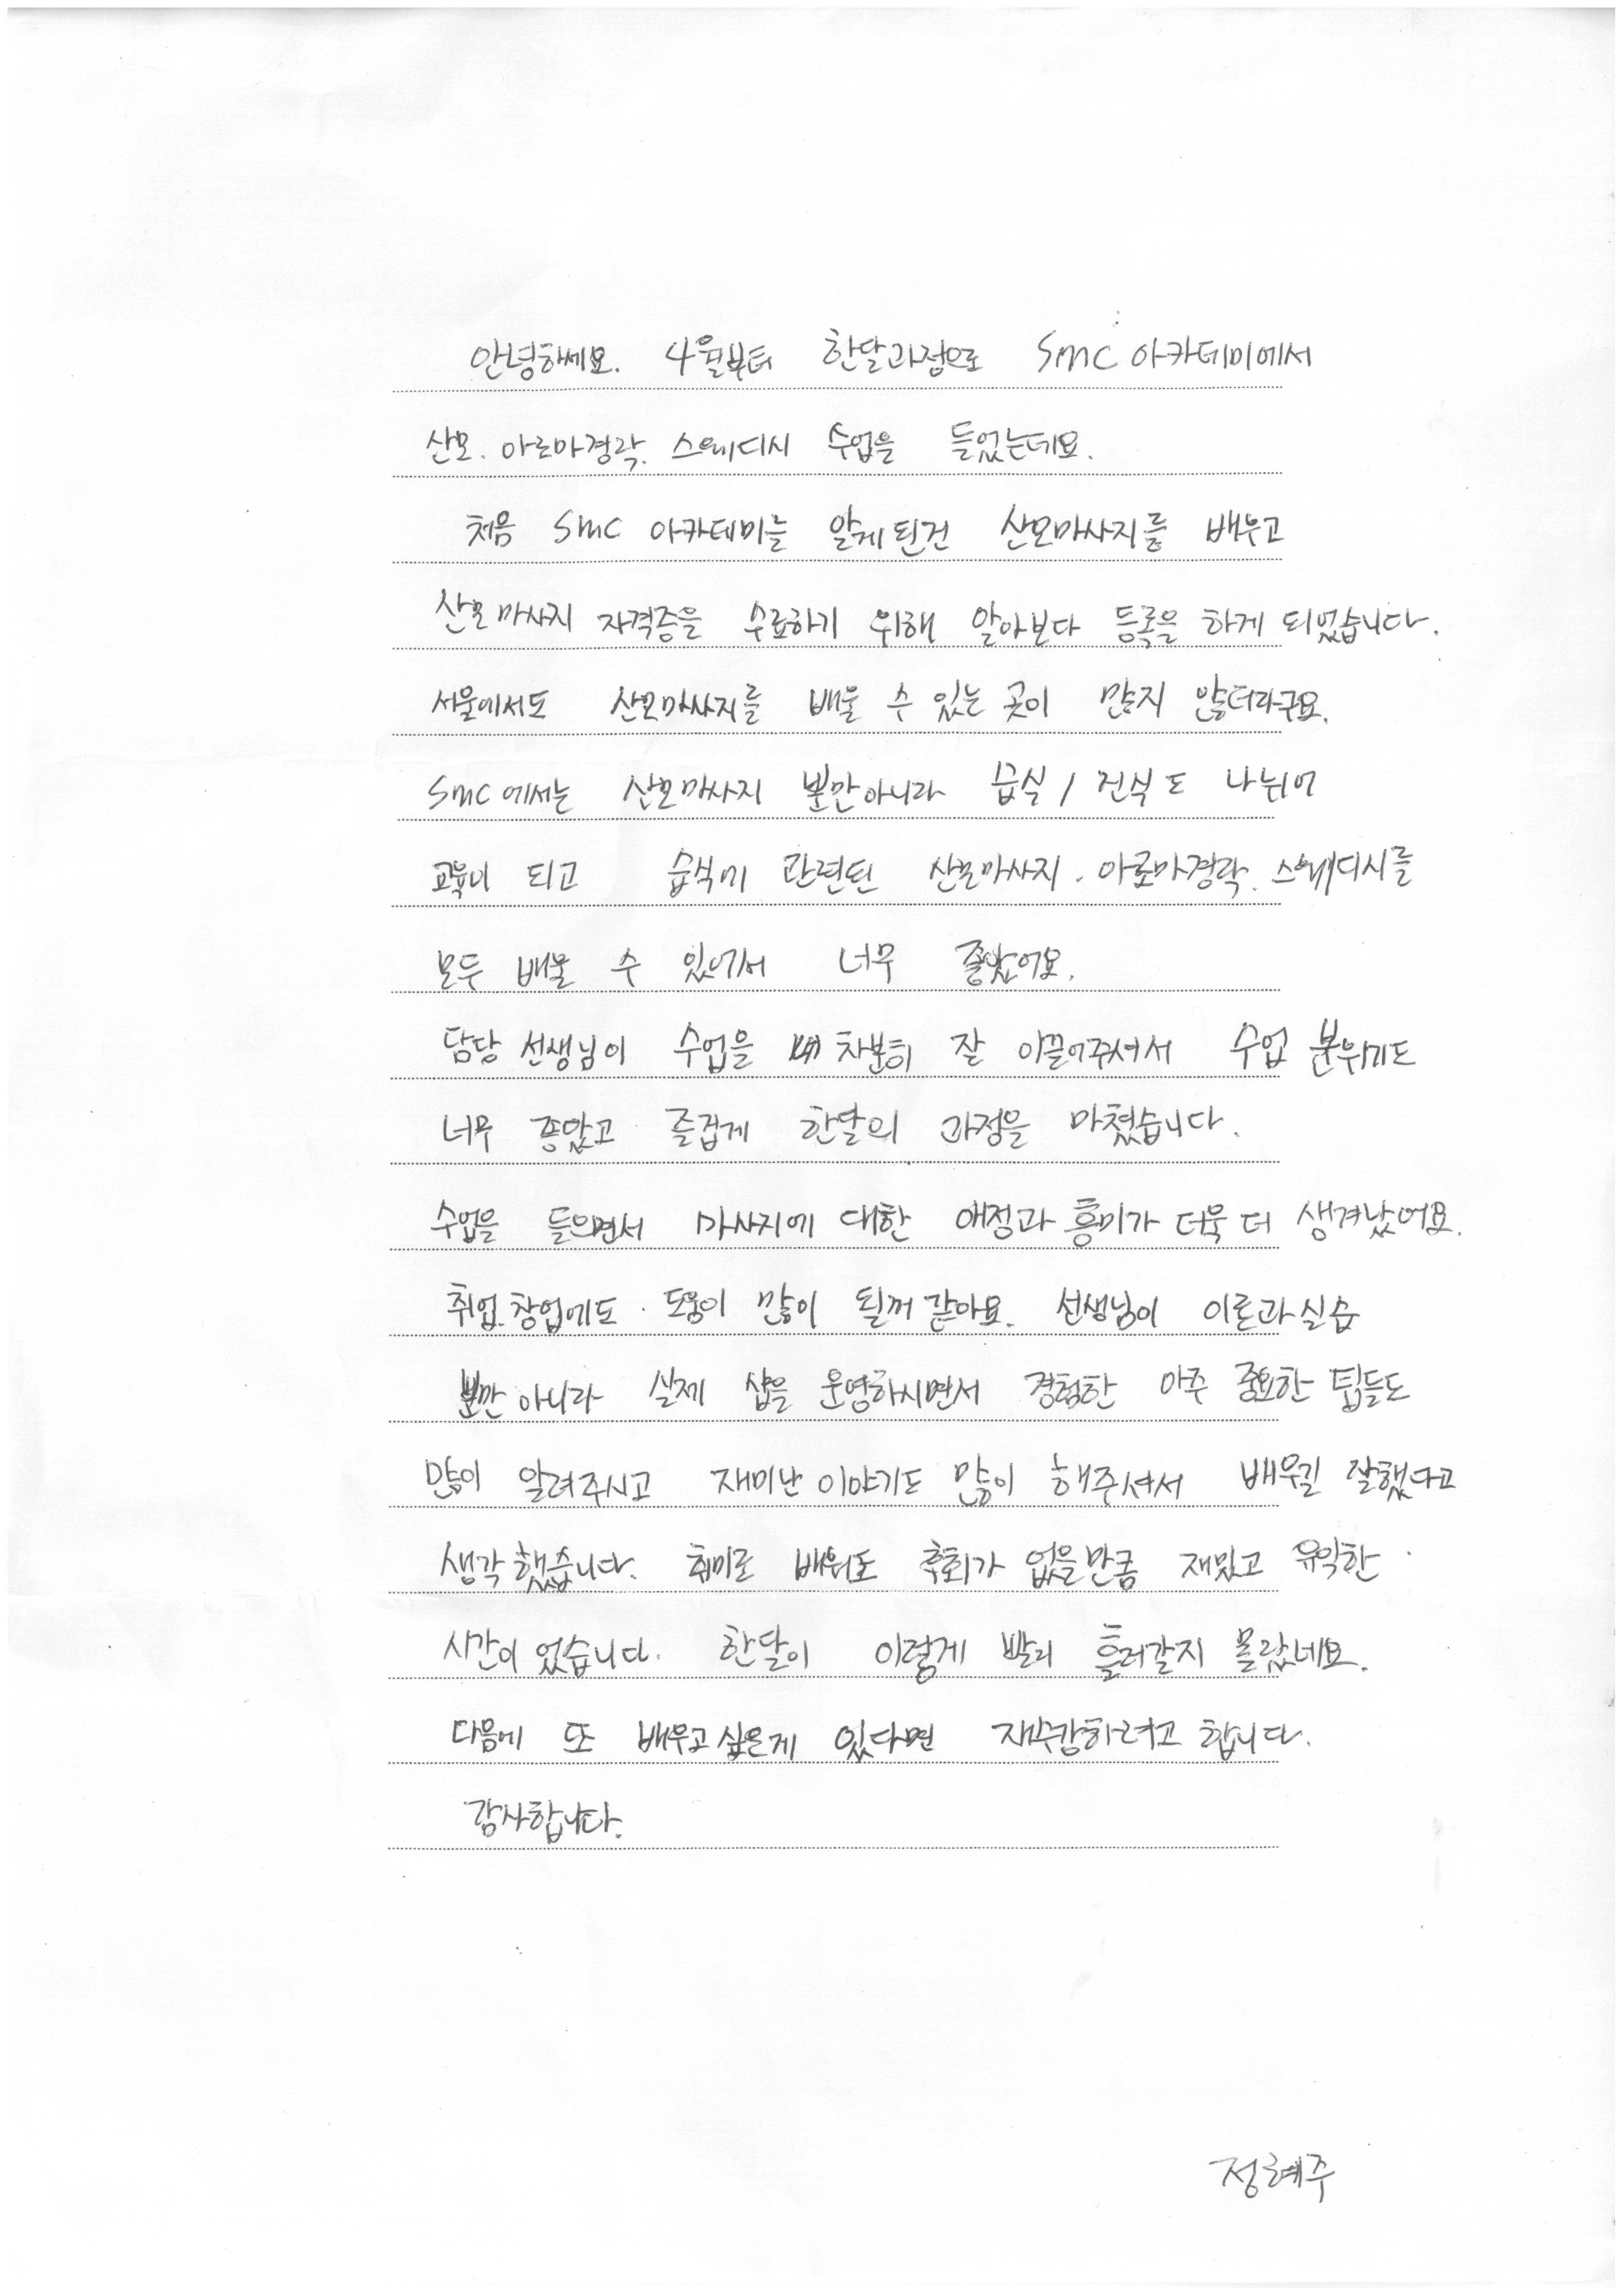 안녕하세요. 4월부터 한달과정으로 SMC 아카데미에서
산모. 아로마경락. 스웨디시 수업을 들었는데요.
처음 SMC 아카데미를 알게된건 산모마사지를 배우고
산모마사지 자격증을 수료하기 위해 알아보다 등록을 하게 되었습니다.
서울에서도 산모마사지를 배울 수 있는 곳이 많지 않더라구요.
SMC에서는 산모마사지 뿐만아니라 습식 / 건식도 나뉘어
교육이 되고 습식에 관련된 산모마사지. 아로마경락. 스웨디시를
모두 배울 수 있어서 너무 좋았어요.
담당 선생님이 수업을 차분히 잘 이끌어주셔서 수업 분위기도
너무 좋았고 즐겁게 한달의 과정을 마쳤습니다.
수업을 들으면서 마사지에 대한 애정과 흥미가 더욱 더 생겨났어요.
취업.창업에도 도움이 많이 될꺼 같아요. 선생님이 이론과 실습
뿐만 아니라 실제 샵을 운영하시면서 경험한 아주 중요한 팁들도
많이 알려주시고 재미난 이야기도 많이 해주셔서 배우길 잘했다고
생각했습니다. 취미로 배워도 후회가 없을만큼 재밌고 유익한
시간이 었습니다. 한달이 이렇게 빨리 흘러갈지 몰랐네요.
다음에 또 배우고 싶은게 있다면 재수강하려고 합니다.
감사합니다.
정혜주